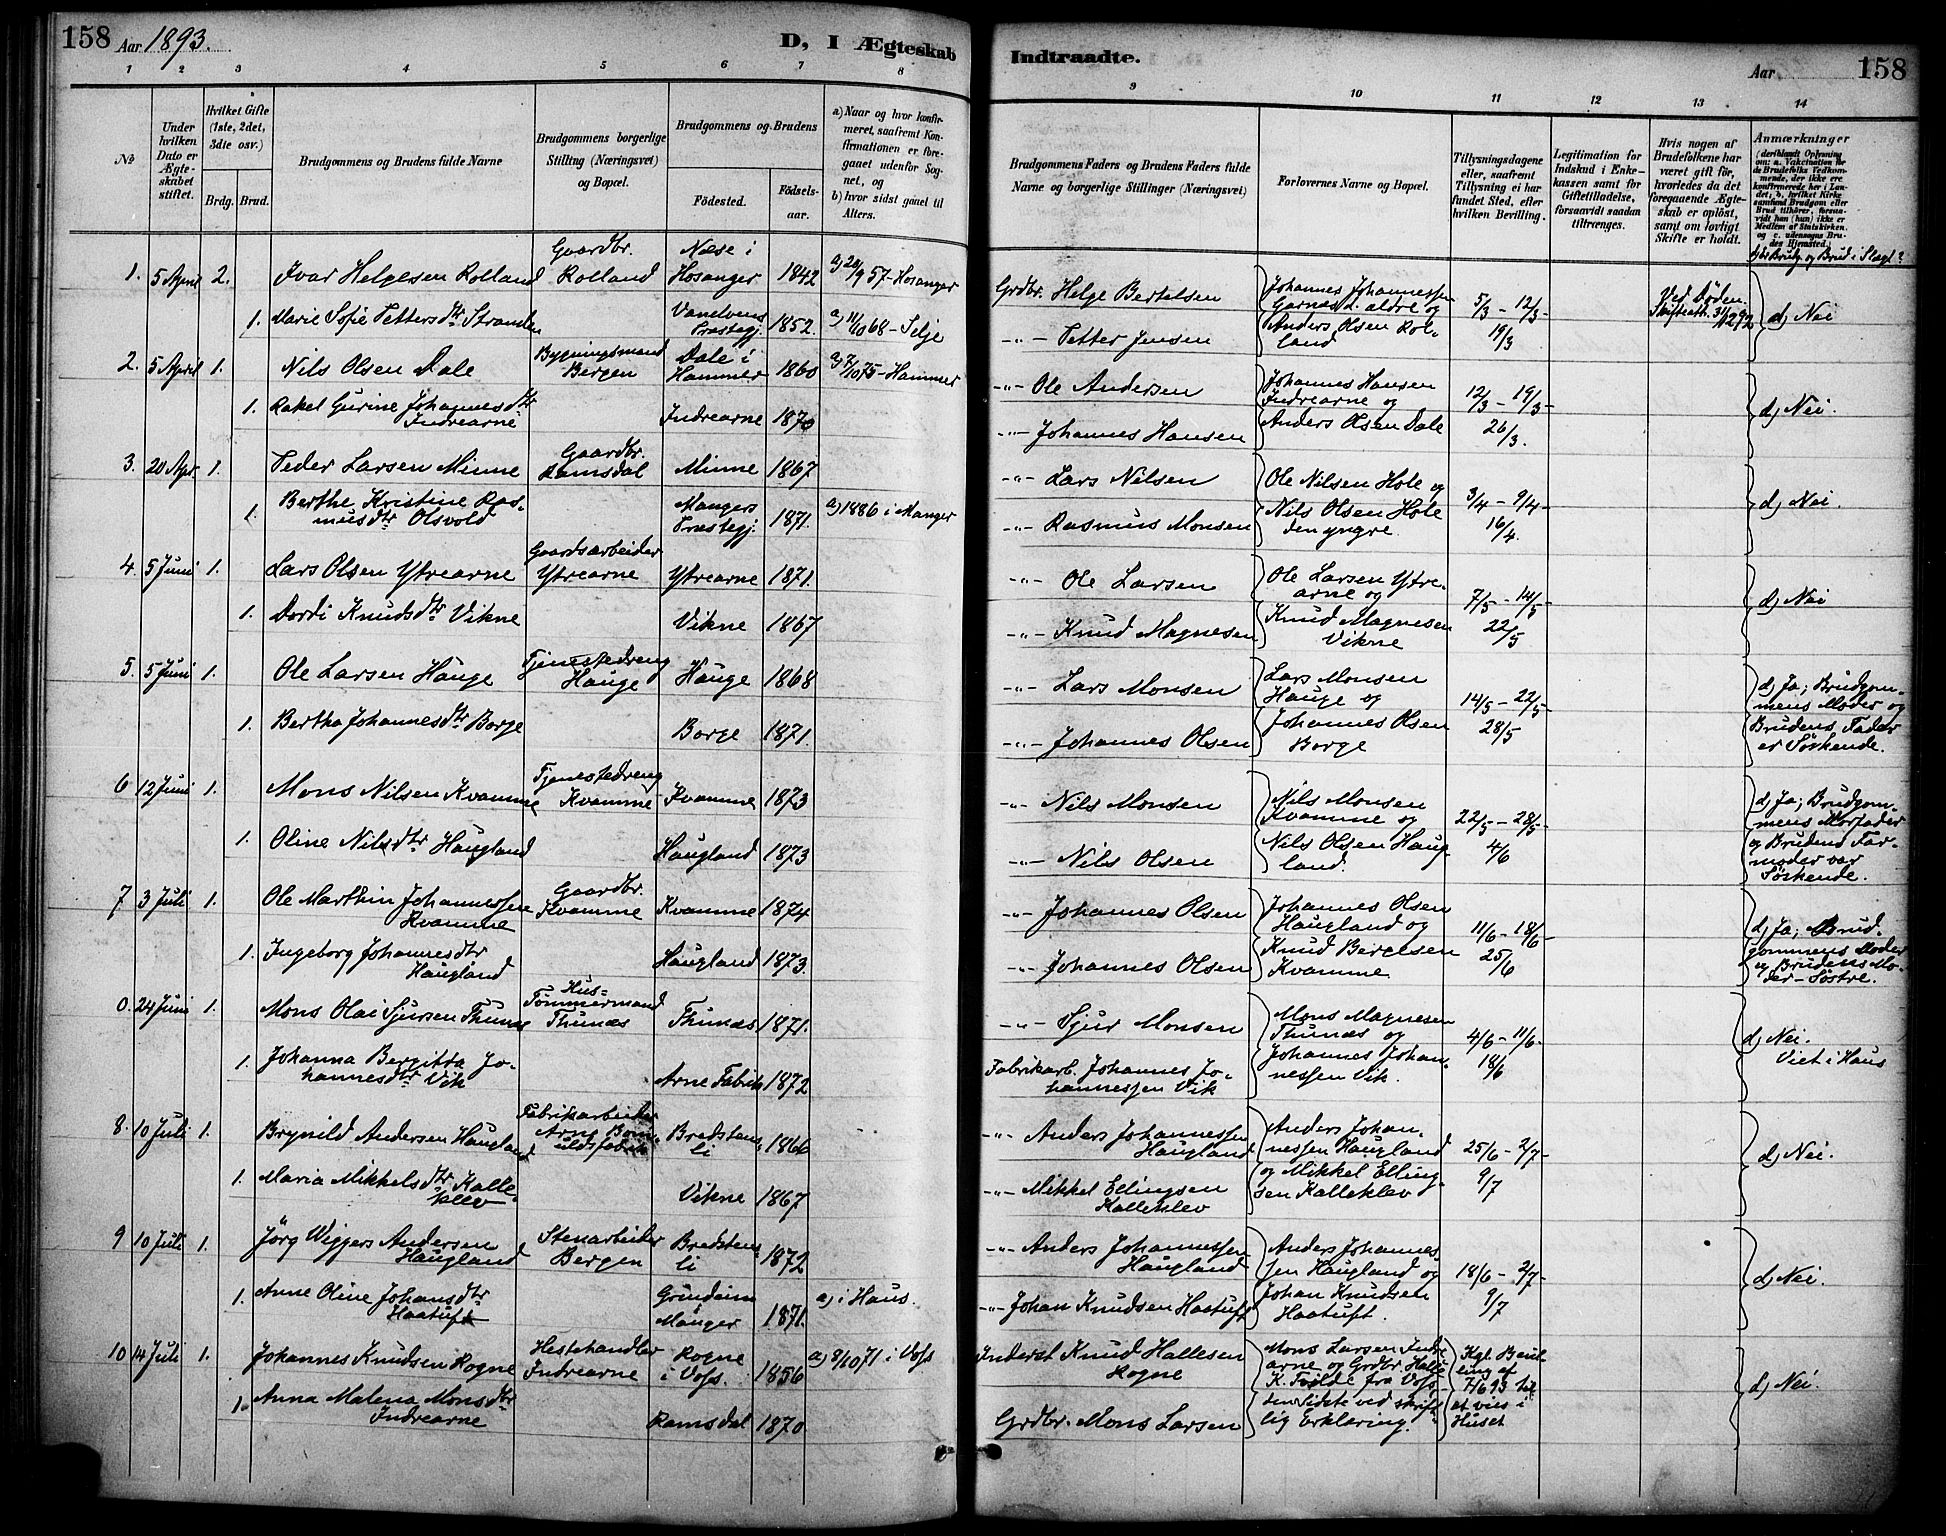 158 Aar 1893. D, I Ægteskab
1 2 3 4 5 6 7 8
No
Under hvilken Dato er Ægteskabet stiftet.
Hvilket Gifte (1ste, 2det, 3die osv.)
Brdg. Brud.
Brudgommens og Brudens fulde Navne
Brudgommens borgerlige Stilling (Næringsvei) og Bopæl.
Brudgommens og Brudens
Fødested. Fødselsaar.
a) Naar og hvor konfirmeret, saafremt Konfirmationen er foregaaet udenfor Sognet, og
b) hvor sidst gaaet til Alters.
1. 5 April 2. Ivar Helgesen Rolland Gaardbr. Rolland Næse i Hosanger 1842 a) 20/9 57 - Hosanger
1. Marie Sofie Pettersdtr Stranden Vanelvens Præstegj. 1852. a) 11/10 68 - Selje
2. 5 April 1. Nils Olsen Dale Bygningsmand Bergen Dale i Hammer 1860 a) 7/10 75 - Hammer
1. Rakel Gurine Johannesdtr Indrearne Indrearne 1870
3. 20 Apr. 1. Peder Larsen Minne Gaardbr. Ramsdal Minne 1867
1. Berthe Kristine Rasmusdtr Olsvold Mangers Præstegj. 1871. a) 1886 i Manger
4. 5 Juni 1. Lars Olsen Ytrearne Gaardsarbeider Ytrearne Ytrearne 1871.
1. Dordi Knudsdtr Vikne Vikne 1867
5. 5 Juni 1. Ole Larsen Hauge Tjenestedreng Hauge Hauge 1868
1. Bertha Johannesdtr Borge Borge 1871.
6 12 Juni 1. Mons Nilsen Kvamme Tjenestedreng Kvamme Kvamme 1873
1. Oline Nilsdtr Haugland Haugland 1873
7 3 Juli 1. Ole Marthin Johannessen Kvamme Gaardbr. Kvamme Kvamme 1874
1. Ingeborg Johannesdtr Haugland Haugland 1873.
0. 24 Juni 1. Mons Olai Sjursen Thunæs Hus-Tømmermand Thunæs Thunæs 1871.
1. Johanna Bergitta Johannesdtr Vik Arne Fabrik 1872
8. 10 Juli 1. Brynild Andersen Haugland Fabrikarbeider Arne Bredstensli 1866
1. Maria Mikkelsdtr Kalleklev Vikne 1867
9 10 Juli 1. Jörg Wiggers Andersen Haugland Stenarbeider Bergen Bredstensli 1872
1. Anne Oline Johansdtr Haatuft Grindeim Manger 1871. a) i Haus.
10 14 Juli 1. Johannes Knudsen Rogne Hestehandler Indrearne Rogne i Voss. 1856 a) 8/10 71 i Voss
1. Anna Malena Monsdtr Indrearne Ramsdal 1870
Indtraadte. Aar 158
9 10 11 12 13 14
Brudgommens Faders og Brudens Faders fulde Navne og borgerlige Stillinger (Næringsvei)
Forlovernes Navne og Bopæl.
Tillysningsdagene eller, saafremt Tillysning ei har fundet Sted, efter hvilken Bevilling.
Legitimation for Indskud i Enkekassen samt for Giftetilladelse, forsaavidt saadan tiltrænges.
Hvis nogen af Brudefolkene har været gift før, hvorledes da det foregaaende Ægteskab er opløst, samt om lovligt Skifte er holdt.
Anmærkninger
(deriblandt Oplysning om: a. Vakcination for de Brudefolks Vedkommende, der ikke ere konfirmerede her i Landet; b. hvilket Kirkesamfund Brudgom eller Brud tilhører, forsaavidt han (hun) ikke er Medlem af Statskirken, og c. udensogns Brudes Hjemsted.)
Brudg. og Brud i Slægt?
Grdbr. Helge Bertelsen Johannes Johannessen Garnæs d. ældre og 5/3 - 12/3 - Ved Døden. d) Nei
-"- Petter Jensen Anders Olsen Rolland 19/3
-"- Ole Andersen Johannes Hansen Indrearne og 12/3 - 19/3 - d) Nei.
-"- Johannes Hansen Anders Olsen Dale 26/3.
-"- Lars Nilsen Ole Nilsen Hole og 3/4 - 9/4 - d) Nei.
-"- Rasmus Monsen Nils Olsen Hole den yngre. 16/4.
-"- Ole Larsen Ole Larsen Ytrearne og 7/5 - 14/5 - d) Nei
-"- Knud Magnesen Knud Magnesen Vikne 22/5
-"- Lars Monsen Lars Monsen Hauge og 14/5 - 22/5 - d) Ja; Brudgommens Moder og
-"- Johannes Olsen Johannes Olsen Borge 28/5 Brudens Fader er Søskende.
-"- Nils Monsen Nils Monsen Kvamme og 22/5 - 28/5 - d) Ja; Brudgommens Morfader
-"- Nils Olsen Nils Olsen Haugland. 4/6 og Brudens Farmoder var Søskende.
-"- Johannes Olsen Johannes Olsen Haugland og 11/6 - 18/6 - d) Ja; Brudgommens Moder
-"- Johannes Olsen Knud Bergesen Kvamme 25/6 og Brudens Moder - Søstre.
-"- Sjur Monsen Mons Magnesen Thunæs og 4/6 - 11/6 - d) Nei.
Fabrikarb. Johannes Johannessen Vik Johannes Johannessen Vik. 18/6 Viet i Haus
-"- Anders Johannessen Haugland Anders Johannessen Haugland 25/6 - 2/7 - d) Nei.
-"- Mikkel Ellingsen Kalleklev og Mikkel Ellingsen Kalleklev 9/7
-"- Anders Johannessen Haugland Anders Johannessen Haugland og 18/6 - 2/7 - d) Nei.
-"- Johan Knudsen Haatuft Johan Knudsen Haatuft. 9/7
Inderst Knud Hallesen Rogne Mons Larsen Indrearne og Grdbr. Halle K. fra Voss Kgl. Bevilling af 7/6 93 til d) Nei.
Grdbr. Mons Larsen den sidste ved skriftlig Erklæring. at vies i Huset